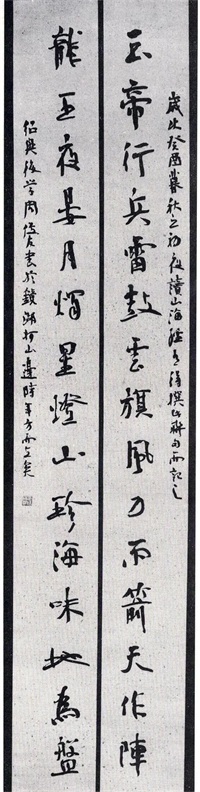 歲次癸酉暮秋之初夜讀山海經有得撰此聯句而記之
玉帝行兵雷鼓雲旗風刀雨箭天作陣
龍王夜宴月燭星燈山珍海味地為盤
紹興後學周書於鏡湖柯山邊時年方而立矣